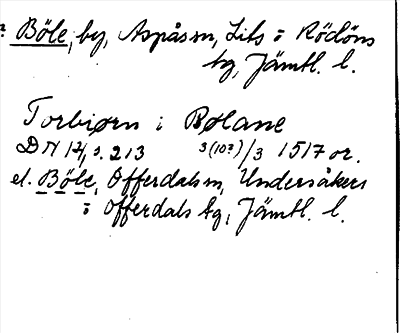 ? Böle, by, Aspåsm, Lits o Rödöns
tg, Jämtl. l.
Torbiørn i Bølane
DN 14, s. 213 3(10?)/3 1517 or.
el. Böle, Offerdalsm, Undersåkers
o Offerdals tg, Jämtl. l.